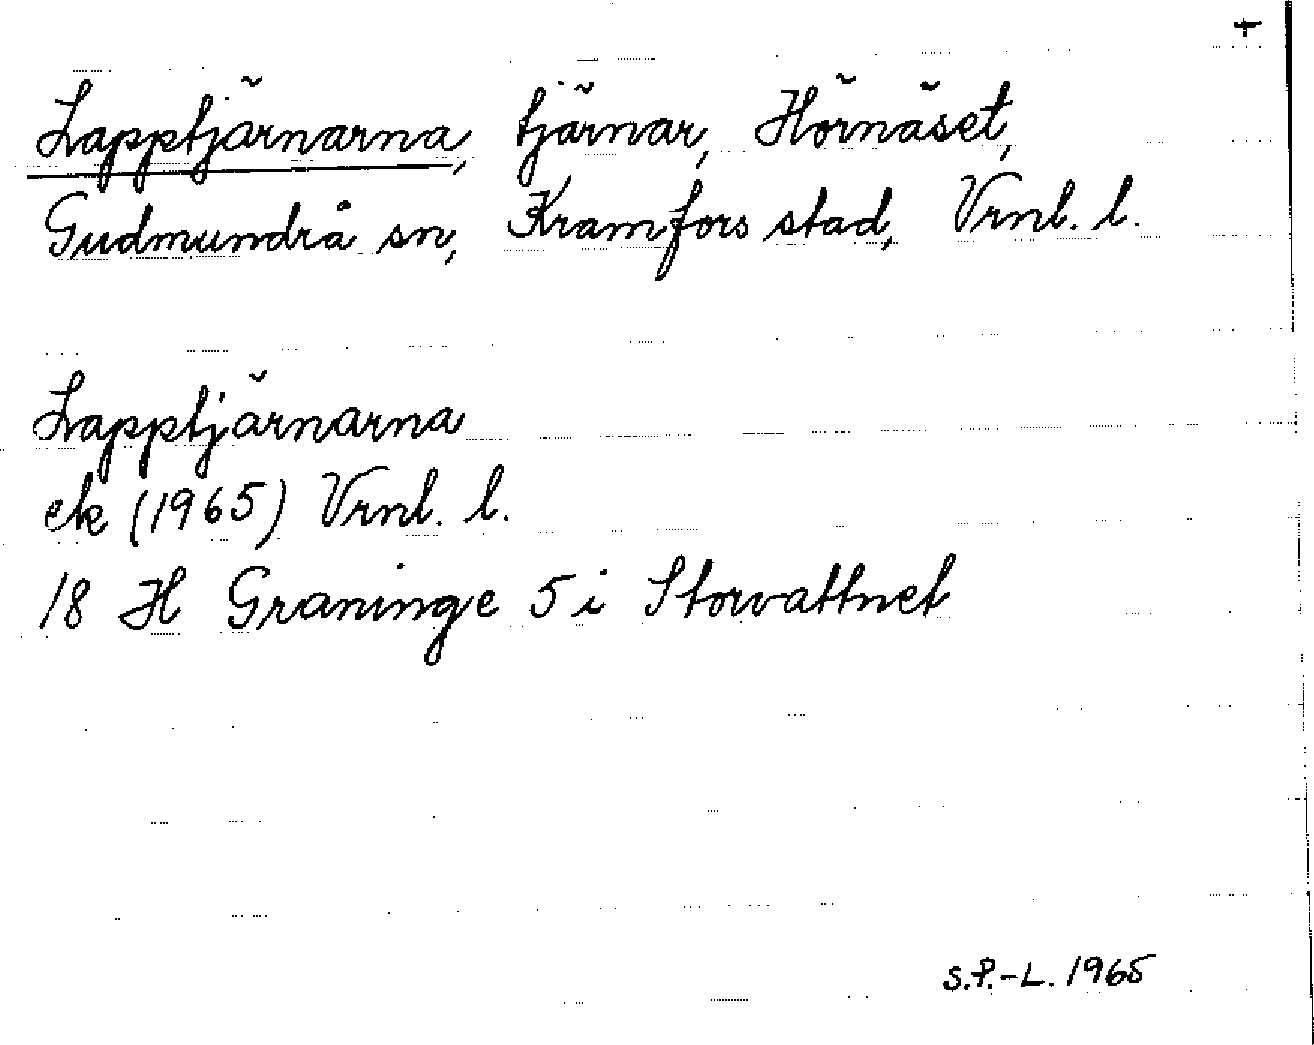 +
Lapptjärnarna, tjärnar, Hörnäset,
Gudmundrå sn, Kramfors stad, Vrnl. l.
Lapptjärnarna
ek (1965) Vrnl. l.
18 H Graninge 5 i Storvattnet
S.P.-L. 1965